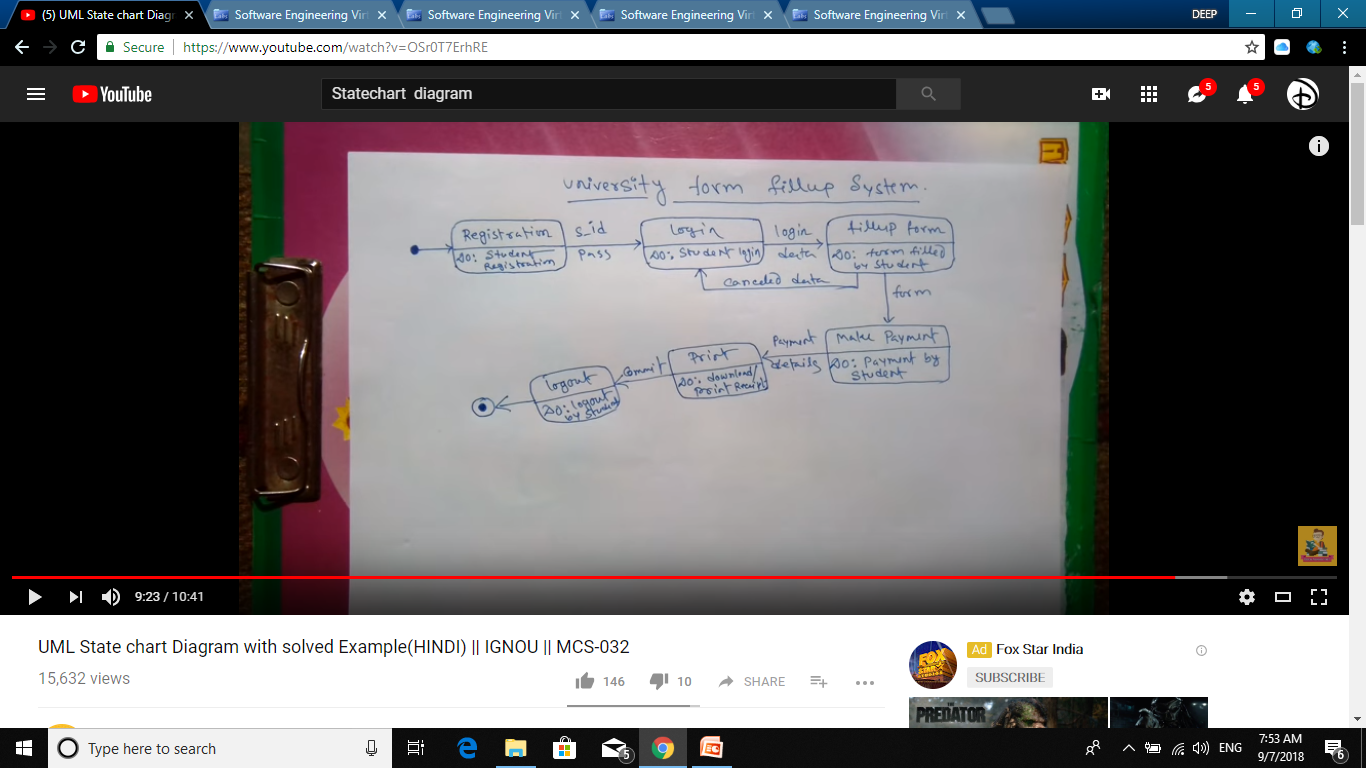 (5) UML State chart Diagr
Software Engineering Virt
Software Engineering Virt
Software Engineering Virt
Software Engineering Virt
DEEP
Secure
https://www.youtube.com/watch?v=OSr0T7ErhRE
YouTube
Statechart diagram
5
5
University form fillup System.
Registration
DO: Student
Registration
s_id
pass
Login
DO: Student login
login
data
fillup form
DO: form filled
by Student
canceled data
form
Make Payment
DO: Payment by
Student
Payment
details
Print
DO: download/
Print Receipt
Commit
logout
DO: logout
by Student
9:23 / 10:41
UML State chart Diagram with solved Example(HINDI) || IGNOU || MCS-032
15,632 views
146
10
SHARE
Ad Fox Star India
SUBSCRIBE
FOX STAR STUDIOS
THE PREDATOR
Type here to search
5
ENG
7:53 AM
9/7/2018
6